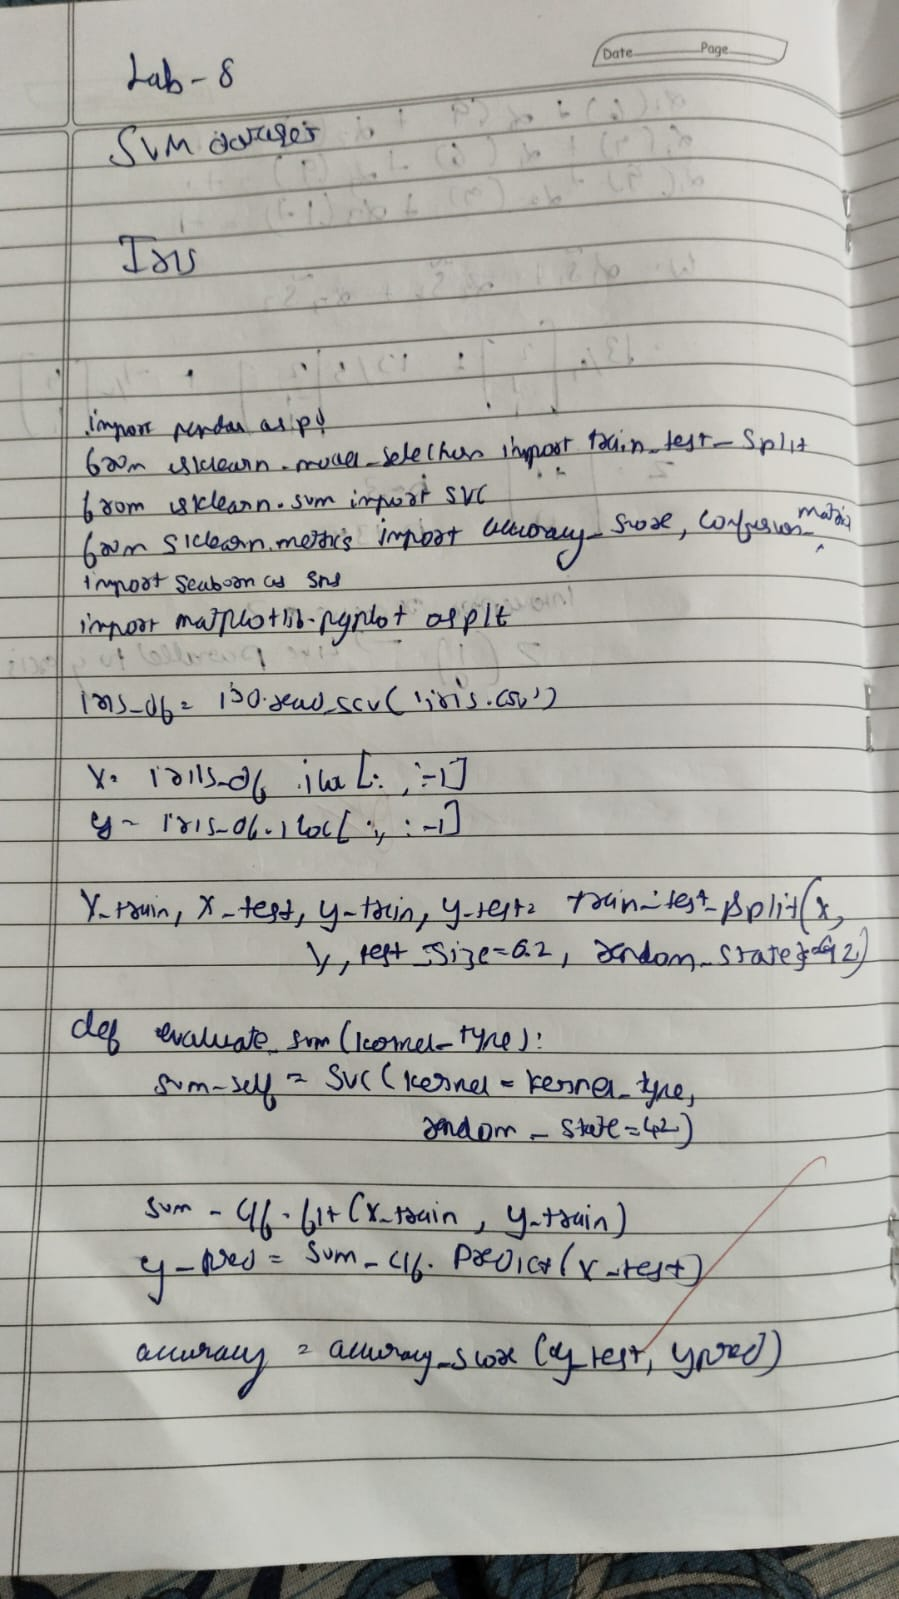 Date Page
Lab - 8
SVM
Iris
import pandas as pd
from sklearn.model_selection import train_test_split
from sklearn.svm import SVC
from sklearn.metrics import accuracy_score, confusion_matrix
import seaborn as sns
import matplotlib.pyplot as plt
iris_df = pd.read_scv('iris.csv')
X = iris_df.iloc[:, :-1]
y = iris_df.iloc[:, :-1]
X_train, X_test, y_train, y_test = train_test_split(X,
y, test_size=0.2, random_state=42)
def evaluate_svm(kernel_type):
svm_self = SVC(kernel = kernel_type,
random_state=42)
svm_clf.fit(X_train, y_train)
y_pred = svm_clf.predict(X_test)
accuracy = accuracy_score(y_test, y pred)